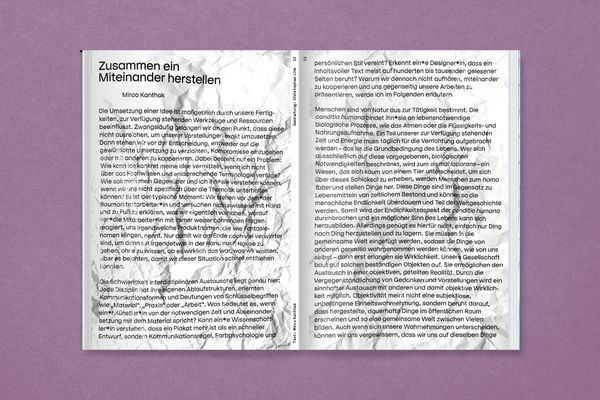 Zusammen ein
Miteinander herstellen
Mirco Kanthak
Die Umsetzung einer Idee ist maßgeblich durch unsere Fertig-
keiten, zur Verfügung stehenden Werkzeuge und Ressourcen
beeinflusst. Zwangsläufig gelangen wir an den Punkt, dass diese
nicht ausreichen, um unsere Vorstellungen exakt umzusetzen.
Dann stehen wir vor der Entscheidung, entweder auf die
gewünschte Umsetzung zu verzichten, Kompromisse einzugehen
oder mit anderen zu kooperieren. Dabei besteht nur ein Problem:
Wie kann ich konkret meine Idee vermitteln, wenn ich nicht
über das Fachwissen und entsprechende Terminologie verfüge?
Wie soll mich mein Gegenüber und ich ihn/sie verstehen können,
wenn wir uns nicht spezifisch über die Thematik unterhalten
können? Es ist der typische Moment: Wir stehen vor dem*der
Baumarktmitarbeiter*in und versuchen uns zwangsweise mit Hand
und Fuß zu erklären, was wir eigentlich vorhaben, worauf
der*die Mitarbeiter*in mit immer weiteren komplexen Fragen
reagiert, uns irgendwelche Produktnamen, die wie Fantasie-
namen klingen, nennt. Nur damit wir am Ende noch viel verwirrter
sind, um dann mit irgendetwas in der Hand nach Hause zu
gehen, ohne zu wissen, ob es wirklich das war, was wir wollten,
aber es beahnten, damit wir dieser Situation schnell entfliehen
konnten.
Die Schwierigkeit interdisziplinären Austauschs liegt genau hier:
Jede Disziplin hat ihre eigenen Ablaufstrukturen, erlernten
Kommunikationsformen und Deutungen von Schlüsselbegriffen
wie „Material“, „Praxis“ oder „Arbeit“. Was bedeutet es, wenn
ein*e Künstler*in von der notwendigen Zeit und Auseinander-
setzung mit dem Material spricht? Kann ein*e Wissenschaft-
ler*in verstehen, dass ein Plakat mehr ist als ein schneller
Entwurf, sondern Kommunikationsregel, Farbpsychologie und
52
Gestaltung: Christopher Link
Text: Mirco Kanthak
53
persönlichen Stil vereint? Erkennt ein*e Designer*in, dass ein
inhaltsvoller Text meist auf hunderten bis tausender gelesener
Seiten beruht? Warum wir dennoch nicht aufhören, miteinander
zu kooperieren und uns gegenseitig unsere Arbeiten zu
präsentieren, werde ich im Folgenden erläutern.
Menschen sind von Natur aus zur Tätigkeit bestimmt. Die
conditio humana bindet ihn*sie an lebensnotwendige
biologische Prozesse, wie das Atmen oder die Flüssigkeits- und
Nahrungsaufnahme. Ein Teil unserer zur Verfügung stehenden
Zeit und Energie muss täglich für die Verrichtung aufgebracht
werden – das ist die Grundbedingung des Lebens. Wer sich
ausschließlich auf diese vorgegebenen, biologischen
Notwendigkeiten beschränkt, wird zum animal laborans – ein
Wesen, das sich kaum von einem Tier unterscheidet. Um sich
über dieses Schicksal zu erheben, werden Menschen zum homo
faber und stellen Dinge her. Diese Dinge sind im Gegensatz zu
Lebensmitteln von zeitlichem Bestand und können so die
menschliche Endlichkeit überdauern und Teil der Weltgeschichte
werden. Somit wird der Endlichkeitsaspekt der conditio humana
durchbrochen und ein möglicher Sinn des Lebens kann sich
herausbilden. Allerdings genügt es hierfür nicht, einfach nur Ding
nach Ding herzustellen und zu kopieren. Sie müssen in die
gemeinsame Welt eingefügt werden, sodass die Dinge von
anderen genauso wahrgenommen werden können, wie von uns
selbst – dann erst erlangen sie Wirklichkeit. Unsere Gesellschaft
baut auf solchen beständigen Objekten auf. Sie ermöglichen den
Austausch in einer objektiven, geteilten Realität. Durch die
Vergegenständlichung von Gedanken und Vorstellungen wird ein
sinnhafter Austausch mit anderen und damit objektive Wirklich-
keit möglich. Objektivität meint nicht eine subjektlose,
unbefangene Einheitswahrnehmung, sondern beruht darauf,
dass hergestellte, dauerhafte Dinge im öffentlichen Raum
erscheinen und so eine gemeinsame Welt zwischen Vielen
bilden. Auch wenn sich unsere Wahrnehmungen unterscheiden,
können wir uns vergewissern, dass wir uns auf dieselben Dinge